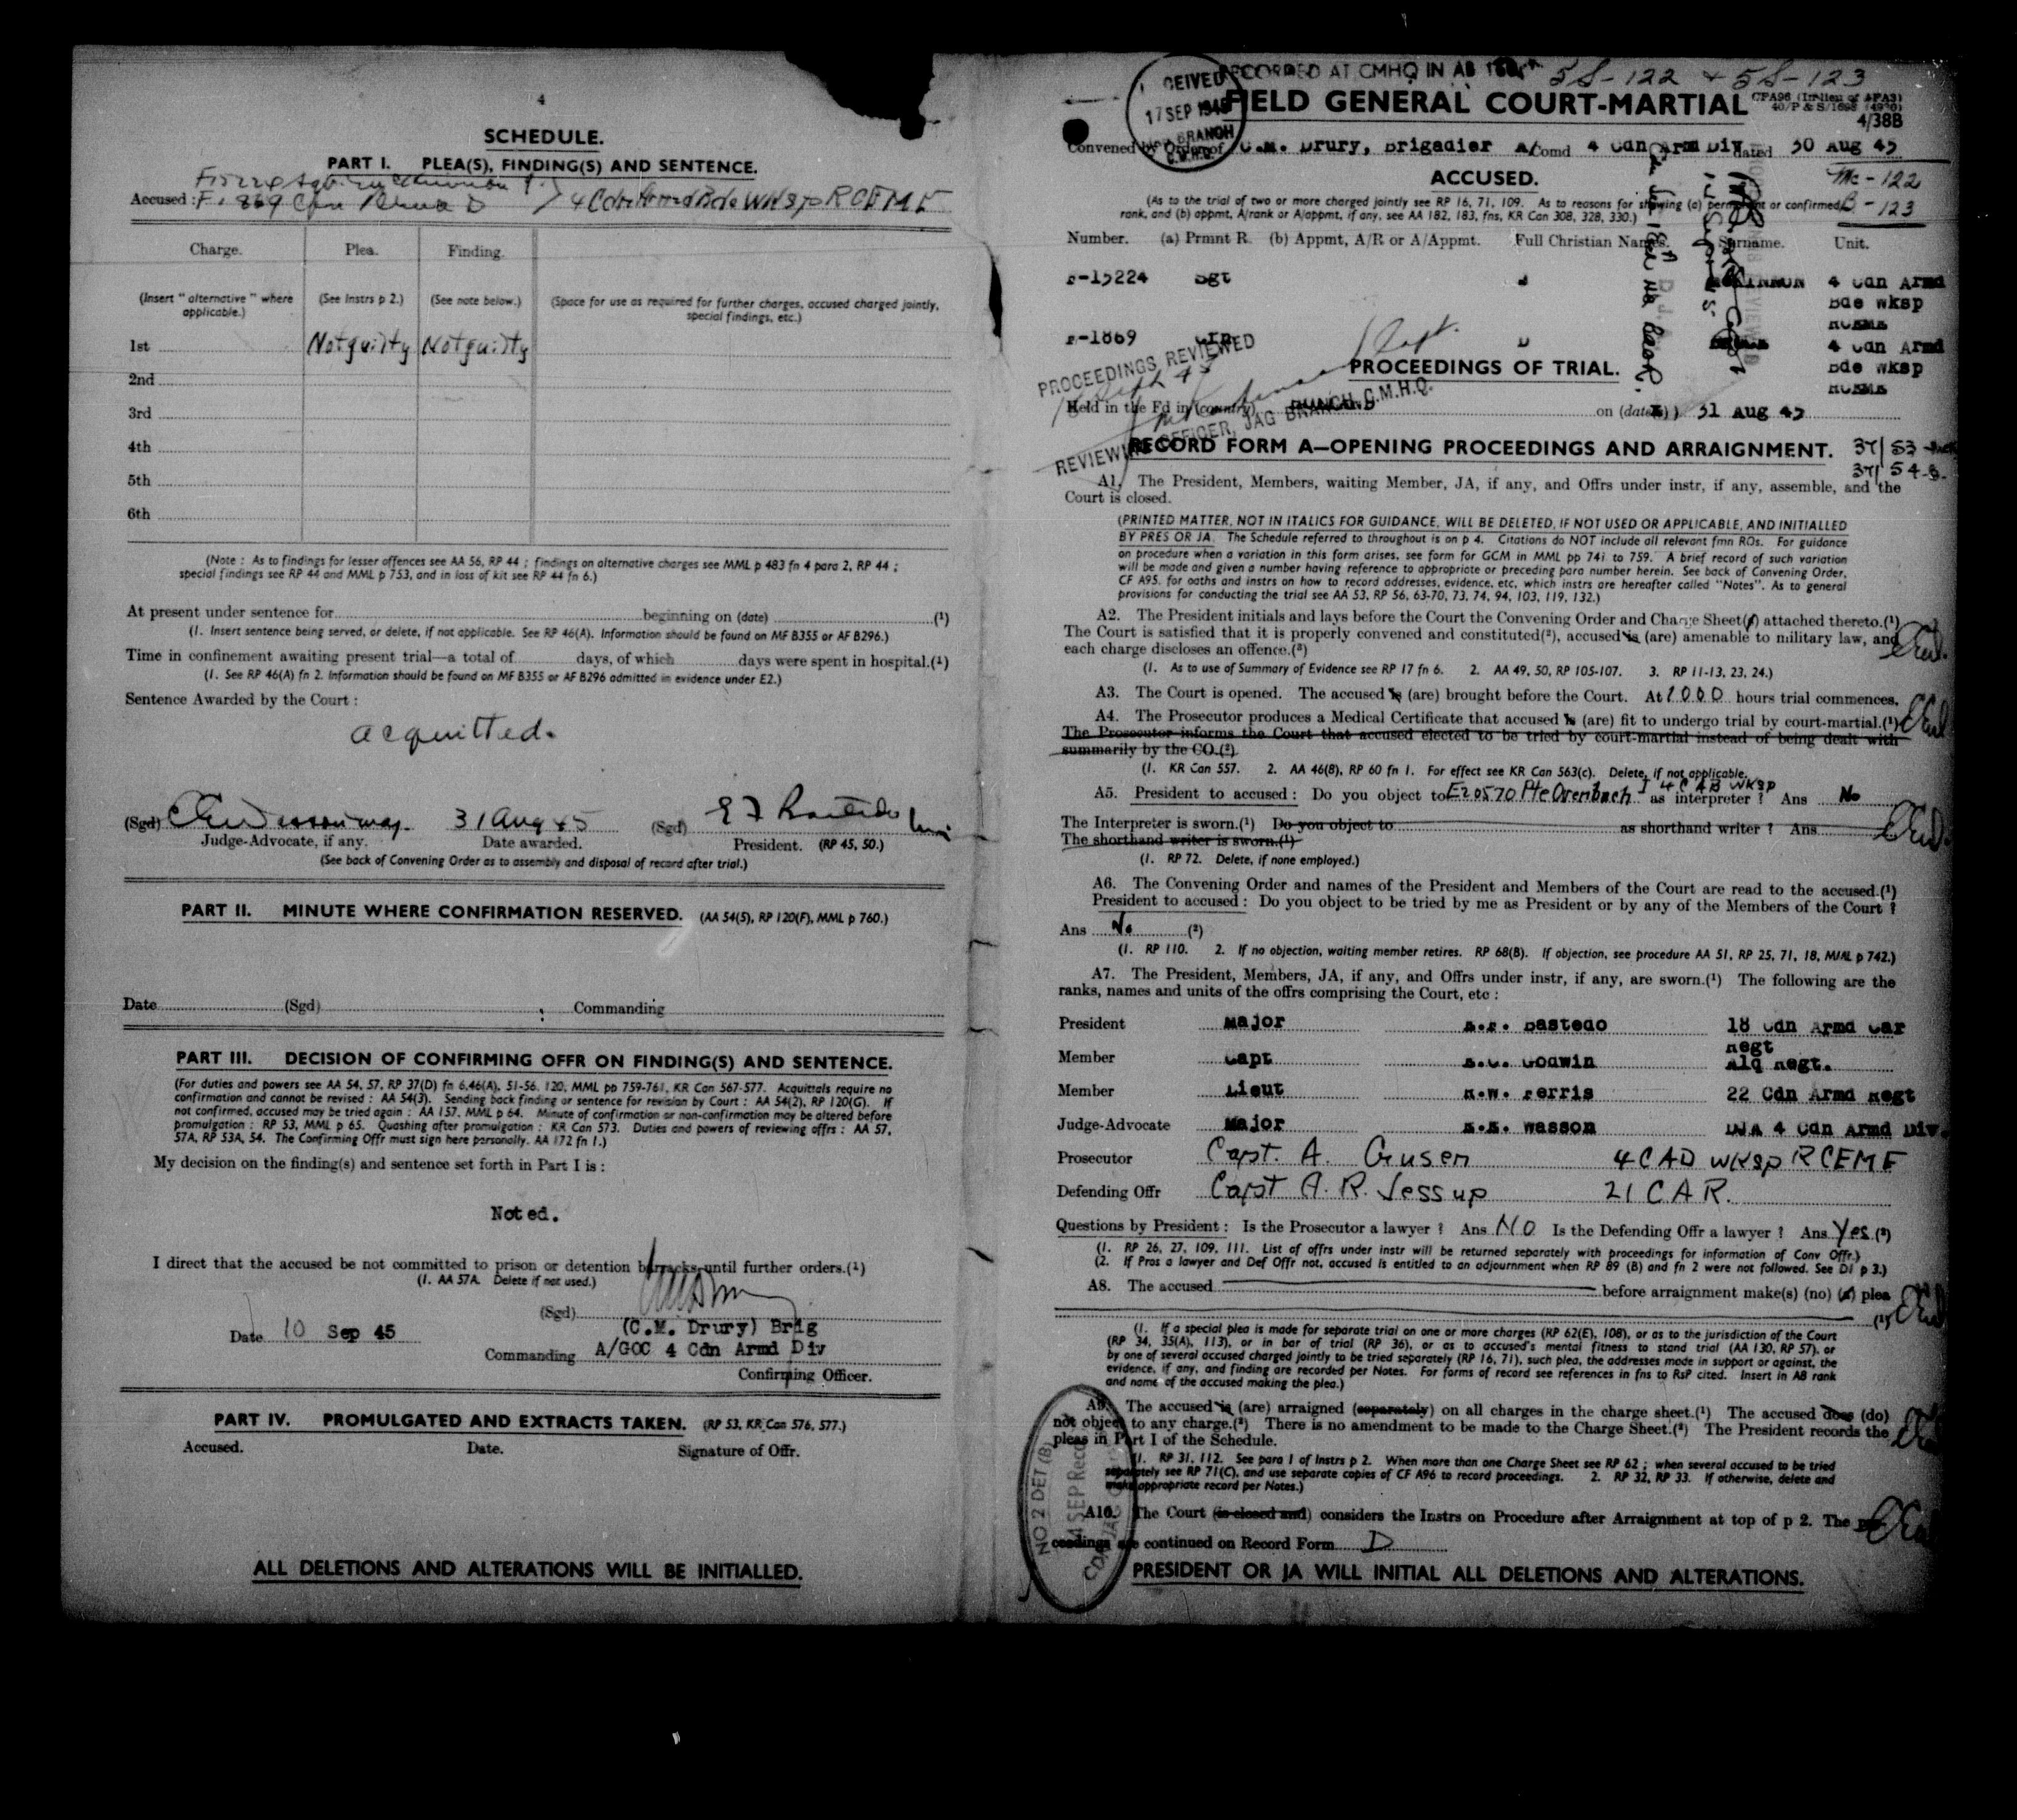 4
SCHEDULE.
PART I. PLEA(S), FINDING(S) AND SENTENCE.
Accused : 4 Cdn Armd Bde Wksp RCEME
Charge. Plea. Finding.
(Insert " alternative " where applicable.) (See Instrs p 2.) (See note below.) (Space for use as required for further charges, accused charged jointly, special findings, etc.)
1st Not guilty Not guilty
2nd
3rd
4th
5th
6th
(Note : As to findings for lesser offences see AA 56, RP 44 ; findings on alternative charges see MML p 483 fn 4 para 2, RP 44 ;
special findings see RP 44 and MML p 753, and in loss of kit see RP 44 fn 6.)
At present under sentence for beginning on (date) (1)
(1. Insert sentence being served, or delete, if not applicable. See RP 46(A). Information should be found on MF B355 or AF B296.)
Time in confinement awaiting present trial—a total of days, of which days were spent in hospital.(1)
(1. See RP 46(A) fn 2. Information should be found on MF B355 or AF B296 admitted in evidence under E2.)
Sentence Awarded by the Court :
acquitted.
(Sgd) 31 Aug 45 (Sgd)
Judge-Advocate, if any. Date awarded. President. (RP 45, 50.)
(See back of Convening Order as to assembly and disposal of record after trial.)
PART II. MINUTE WHERE CONFIRMATION RESERVED. (AA 54(5), RP 120(F), MML p 760.)
Date (Sgd) ; Commanding
PART III. DECISION OF CONFIRMING OFFR ON FINDING(S) AND SENTENCE.
(For duties and powers see AA 54, 57, RP 37(D) fn 6,46(A), 51-56, 120, MML pp 759-761, KR Can 567-577. Acquittals require no
confirmation and cannot be revised : AA 54(3). Sending back finding or sentence for revision by Court : AA 54(2), RP 120(G). If
not confirmed, accused may be tried again : AA 157, MML p 64. Minute of confirmation or non-confirmation may be altered before
promulgation : RP 53, MML p 65. Quashing after promulgation : KR Can 573. Duties and powers of reviewing offrs : AA 57,
57A, RP 53A, 54. The Confirming Offr must sign here personally. AA 172 fn 1.)
My decision on the finding(s) and sentence set forth in Part I is :
Noted.
I direct that the accused be not committed to prison or detention barracks until further orders.(1)
(1. AA 57A. Delete if not used.)
(Sgd)
(C.M. Drury) Brig
Date 10 Sep 45
Commanding A/GOC 4 Cdn Armd Div
Confirming Officer.
PART IV. PROMULGATED AND EXTRACTS TAKEN. (RP 53, KR Can 576, 577.)
Accused. Date. Signature of Offr.
ALL DELETIONS AND ALTERATIONS WILL BE INITIALLED.
RECORDED AT CMHQ IN AB 58-122 + 58-123
FIELD GENERAL COURT-MARTIAL
CFA96 (In lieu of AFA3)
4/38B
Convened by Order of C.M. Drury, Brigadier A/Comd 4 Cdn Armd Div dated 30 Aug 45
ACCUSED.
(As to the trial of two or more charged jointly see RP 16, 71, 109. As to reasons for showing (a) permanent or confirmed
rank, and (b) appmt, A/rank or A/appmt, if any, see AA 182, 183, fns, KR Can 308, 328, 330.)
Mc-122
B-123
Number. (a) Prmnt R. (b) Appmt, A/R or A/Appmt. Full Christian Names. Surname. Unit.
F-15224 Sgt 4 Cdn Armd
Bde Wksp
RCEME
F-1869 Cfn D 4 Cdn Armd
Bde Wksp
RCEME
PROCEEDINGS REVIEWED
REVIEWING OFFICER, JAG BRANCH, C.M.H.Q.
PROCEEDINGS OF TRIAL.
Held in the Fd in (country) on (date(s)) 31 Aug 45
RECORD FORM A—OPENING PROCEEDINGS AND ARRAIGNMENT.
37/53
37/54-B.
A1. The President, Members, waiting Member, JA, if any, and Offrs under instr, if any, assemble, and the
Court is closed.
(PRINTED MATTER, NOT IN ITALICS FOR GUIDANCE, WILL BE DELETED, IF NOT USED OR APPLICABLE, AND INITIALLED
BY PRES OR JA. The Schedule referred to throughout is on p 4. Citations do NOT include all relevant fmn ROs. For guidance
on procedure when a variation in this form arises, see form for GCM in MML pp 741 to 759. A brief record of such variation
will be made and given a number having reference to appropriate or preceding para number herein. See back of Convening Order,
CF A95, for oaths and instrs on how to record addresses, evidence, etc, which instrs are hereafter called "Notes". As to general
provisions for conducting the trial see AA 53, RP 56, 63-70, 73, 74, 94, 103, 119, 132.)
A2. The President initials and lays before the Court the Convening Order and Charge Sheet(s) attached thereto.(1)
The Court is satisfied that it is properly convened and constituted(2), accused is (are) amenable to military law, and
each charge discloses an offence.(3)
(1. As to use of Summary of Evidence see RP 17 fn 6. 2. AA 49, 50, RP 105-107. 3. RP 11-13, 23, 24.)
A3. The Court is opened. The accused is (are) brought before the Court. At 1000 hours trial commences.
A4. The Prosecutor produces a Medical Certificate that accused is (are) fit to undergo trial by court-martial.(1)
The Prosecutor informs the Court that accused elected to be tried by court-martial instead of being dealt with
summarily by the CO.(2)
(1. KR Can 557. 2. AA 46(8), RP 60 fn 1. For effect see KR Can 563(c). Delete, if not applicable.
A5. President to accused : Do you object to E20570 Pte Ovenbach I 4 CAB WKSP as interpreter ? Ans No
The Interpreter is sworn.(1) Do you object to as shorthand writer ? Ans
The shorthand writer is sworn.(1)
(1. RP 72. Delete, if none employed.)
A6. The Convening Order and names of the President and Members of the Court are read to the accused.(1)
President to accused : Do you object to be tried by me as President or by any of the Members of the Court ?
Ans No (2)
(1. RP 110. 2. If no objection, waiting member retires. RP 68(B). If objection, see procedure AA 51, RP 25, 71, 18, MML p 742.)
A7. The President, Members, JA, if any, and Offrs under instr, if any, are sworn.(1) The following are the
ranks, names and units of the offrs comprising the Court, etc :
President Major E.F. Bastedo 18 Cdn Armd Car
Regt
Member Capt Godwin Alq Regt.
Member Lieut Ferris 22 Cdn Armd Regt
Judge-Advocate Major Wasson DJA 4 Cdn Armd Div.
Prosecutor Capt. A. Crusen 4 CAD WKSP RCEME
Defending Offr Capt A. R. Jessup 21 C.A.R.
Questions by President : Is the Prosecutor a lawyer ? Ans NO Is the Defending Offr a lawyer ? Ans Yes (2)
(1. RP 26, 27, 109, 111. List of offrs under instr will be returned separately with proceedings for information of Conv Offr.)
(2. If Pros a lawyer and Def Offr not, accused is entitled to an adjournment when RP 89 (B) and fn 2 were not followed. See D1 p 3.)
A8. The accused before arraignment make(s) (no) (a) plea
(1)
(1. If a special plea is made for separate trial on one or more charges (RP 62(E), 108), or as to the jurisdiction of the Court
(RP 34, 35(A), 113), or in bar of trial (RP 36), or as to accused's mental fitness to stand trial (AA 130, RP 57), or
by one of several accused charged jointly to be tried separately (RP 16, 71), such plea, the addresses made in support or against, the
evidence, if any, and finding are recorded per Notes. For forms of record see references in fns to RsP cited. Insert in A8 rank
and name of the accused making the plea.)
A9. The accused is (are) arraigned (separately) on all charges in the charge sheet.(1) The accused does (do)
not object to any charge.(2) There is no amendment to be made to the Charge Sheet.(2) The President records the
pleas in Part I of the Schedule.
(1. RP 31, 112. See para 1 of Instrs p 2. When more than one Charge Sheet see RP 62 ; when several accused to be tried
separately see RP 71(C), and use separate copies of CF A96 to record proceedings. 2. RP 32, RP 33. If otherwise, delete and
make appropriate record per Notes.)
A10. The Court (is closed and) considers the Instrs on Procedure after Arraignment at top of p 2. The pro-
ceedings are continued on Record Form D
PRESIDENT OR JA WILL INITIAL ALL DELETIONS AND ALTERATIONS.